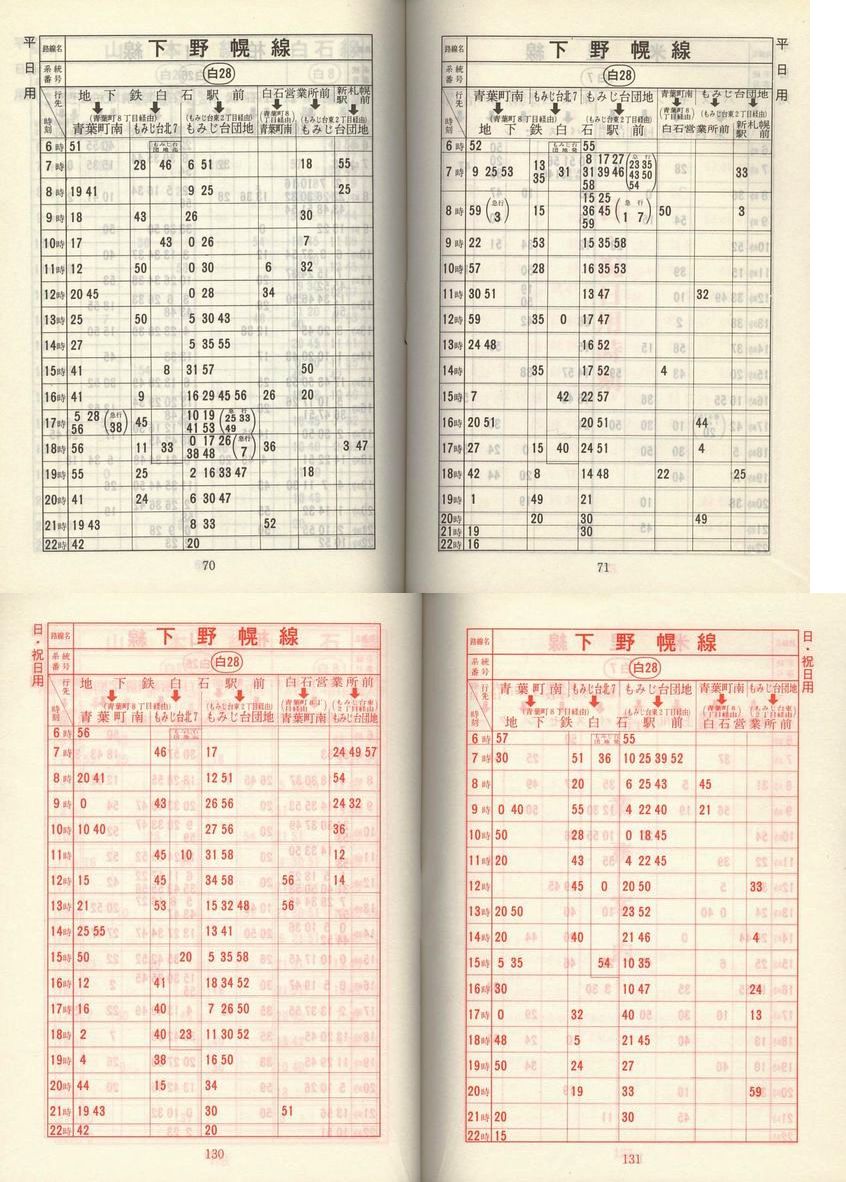 平日用
路線名 下野幌線
系統番号 白28
行先 地下鉄白石駅前 白石営業所前 新札幌駅前
(青葉町8丁目経由) (もみじ台東2丁目経由) (青葉町8丁目経由) (もみじ台東2丁目経由)
時刻 青葉町南 もみじ台北7 もみじ台団地 青葉町南 もみじ台団地
6時 51
7時 28 46 6 51 18 55
8時 19 41 9 25 25
9時 18 43 26 30
10時 17 43 0 26 7
11時 12 50 0 30 6 32
12時 20 45 0 28 34
13時 25 50 5 30 43
14時 27 5 35 55
15時 41 8 31 57 50
16時 41 9 16 29 45 56 26 20
17時 5 28 56 (急行 38) 45 10 19 41 53 (急行 25 33 49)
18時 56 11 33 0 17 26 38 48 (急行 7) 36 3 47
19時 55 25 2 16 33 47 18
20時 41 24 6 30 47
21時 19 43 8 33 52
22時 42 20
70
平日用
路線名 下野幌線
系統番号 白28
行先 青葉町南 もみじ台北7 もみじ台団地 青葉町南 もみじ台団地
(青葉町8丁目経由) (もみじ台東2丁目経由) (青葉町8丁目経由) (もみじ台東2丁目経由)
時刻 地下鉄白石駅前 白石営業所前 新札幌駅前
6時 52 55
7時 9 25 53 13 35 31 8 17 27 31 39 46 58 (急行 23 35 43 50 54) 33
8時 59 (急行 3) 15 15 25 36 45 59 (急行 1 7) 50 3
9時 22 53 15 35 58
10時 57 28 16 35 53
11時 30 51 13 47 32
12時 59 35 0 17 47
13時 24 48 16 52
14時 35 17 52 4
15時 7 42 22 57
16時 20 51 20 51 44
17時 27 15 40 24 51 4
18時 42 8 14 48 22 25
19時 1 49 21
20時 20 30 49
21時 19 30
22時 16
71
日・祝日用
路線名 下野幌線
系統番号 白28
行先 地下鉄白石駅前 白石営業所前
(青葉町8丁目経由) (もみじ台東2丁目経由) (青葉町8丁目経由) (もみじ台東2丁目経由)
時刻 青葉町南 もみじ台北7 もみじ台団地 青葉町南 もみじ台団地
6時 56
7時 46 17 24 49 57
8時 20 41 12 51 54
9時 0 43 26 56 24 32
10時 10 40 27 56 36
11時 45 10 31 58 12
12時 15 45 34 58 56 14
13時 21 53 15 32 48 56
14時 25 55 13 41
15時 50 20 5 35 58
16時 12 41 18 34 52
17時 16 40 7 26 50
18時 2 40 23 11 30 52
19時 4 38 16 50
20時 44 15 34
21時 19 43 30 51
22時 42 20
130
日・祝日用
路線名 下野幌線
系統番号 白28
行先 青葉町南 もみじ台北7 もみじ台団地 青葉町南 もみじ台団地
(青葉町8丁目経由) (もみじ台東2丁目経由) (青葉町8丁目経由) (もみじ台東2丁目経由)
時刻 地下鉄白石駅前 白石営業所前
6時 57 55
7時 30 51 36 10 25 39 52
8時 20 6 25 43 45
9時 0 40 55 4 22 40 21
10時 50 28 0 18 45
11時 20 43 4 22 45
12時 45 0 20 50 33
13時 20 50 23 52
14時 20 40 21 46 4
15時 5 35 54 10 35
16時 30 10 47 24
17時 0 32 40 13
18時 48 5 21 45
19時 50 24 27
20時 19 33 59
21時 20 30
22時 15
131